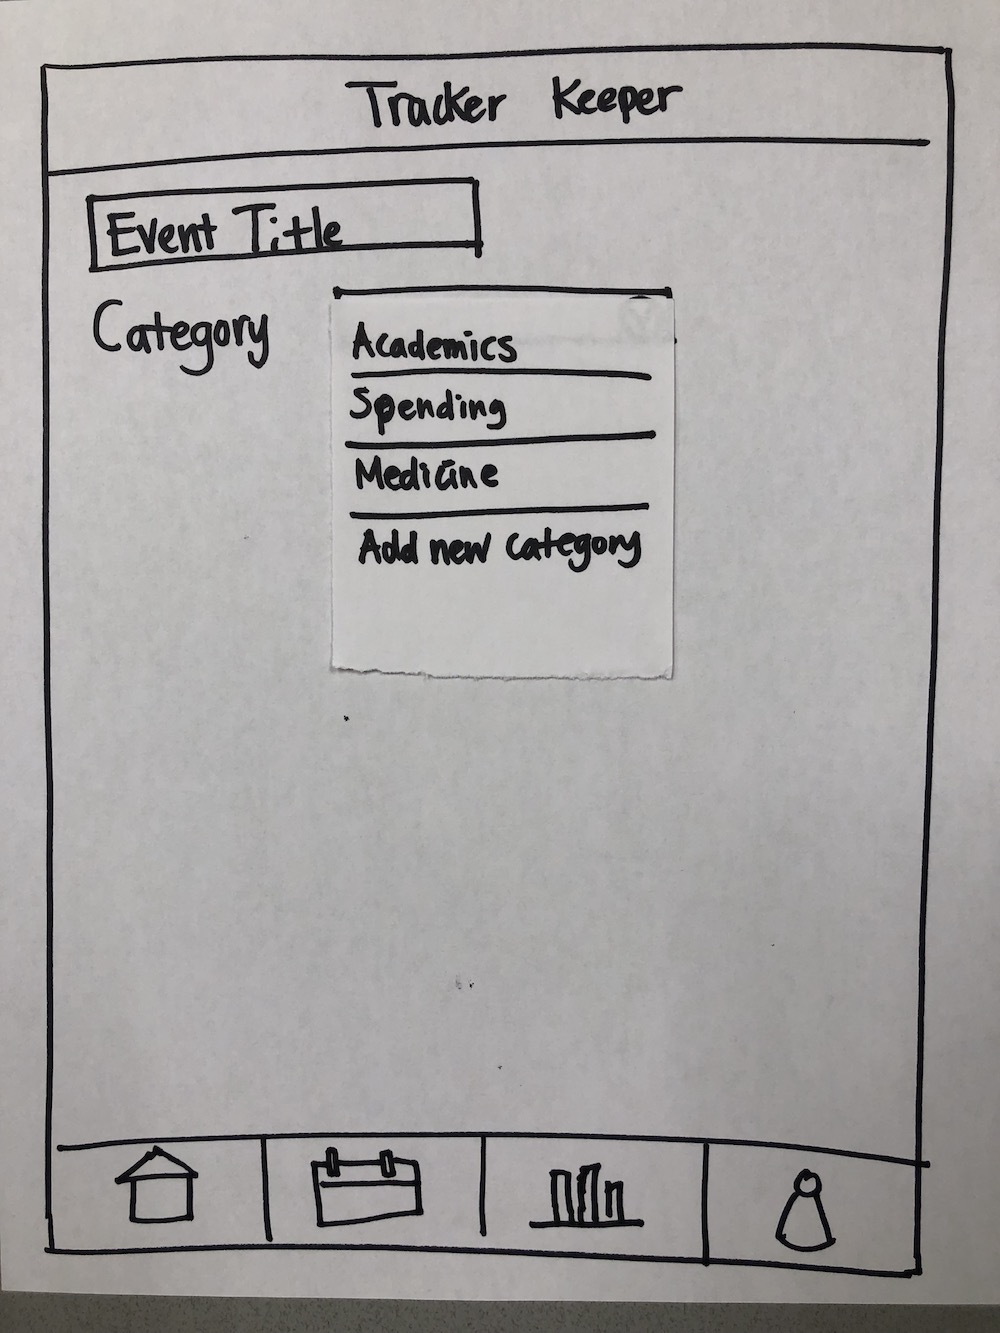 Tracker Keeper
Event Title
Category
Academics
Spending
Medicine
Add new category